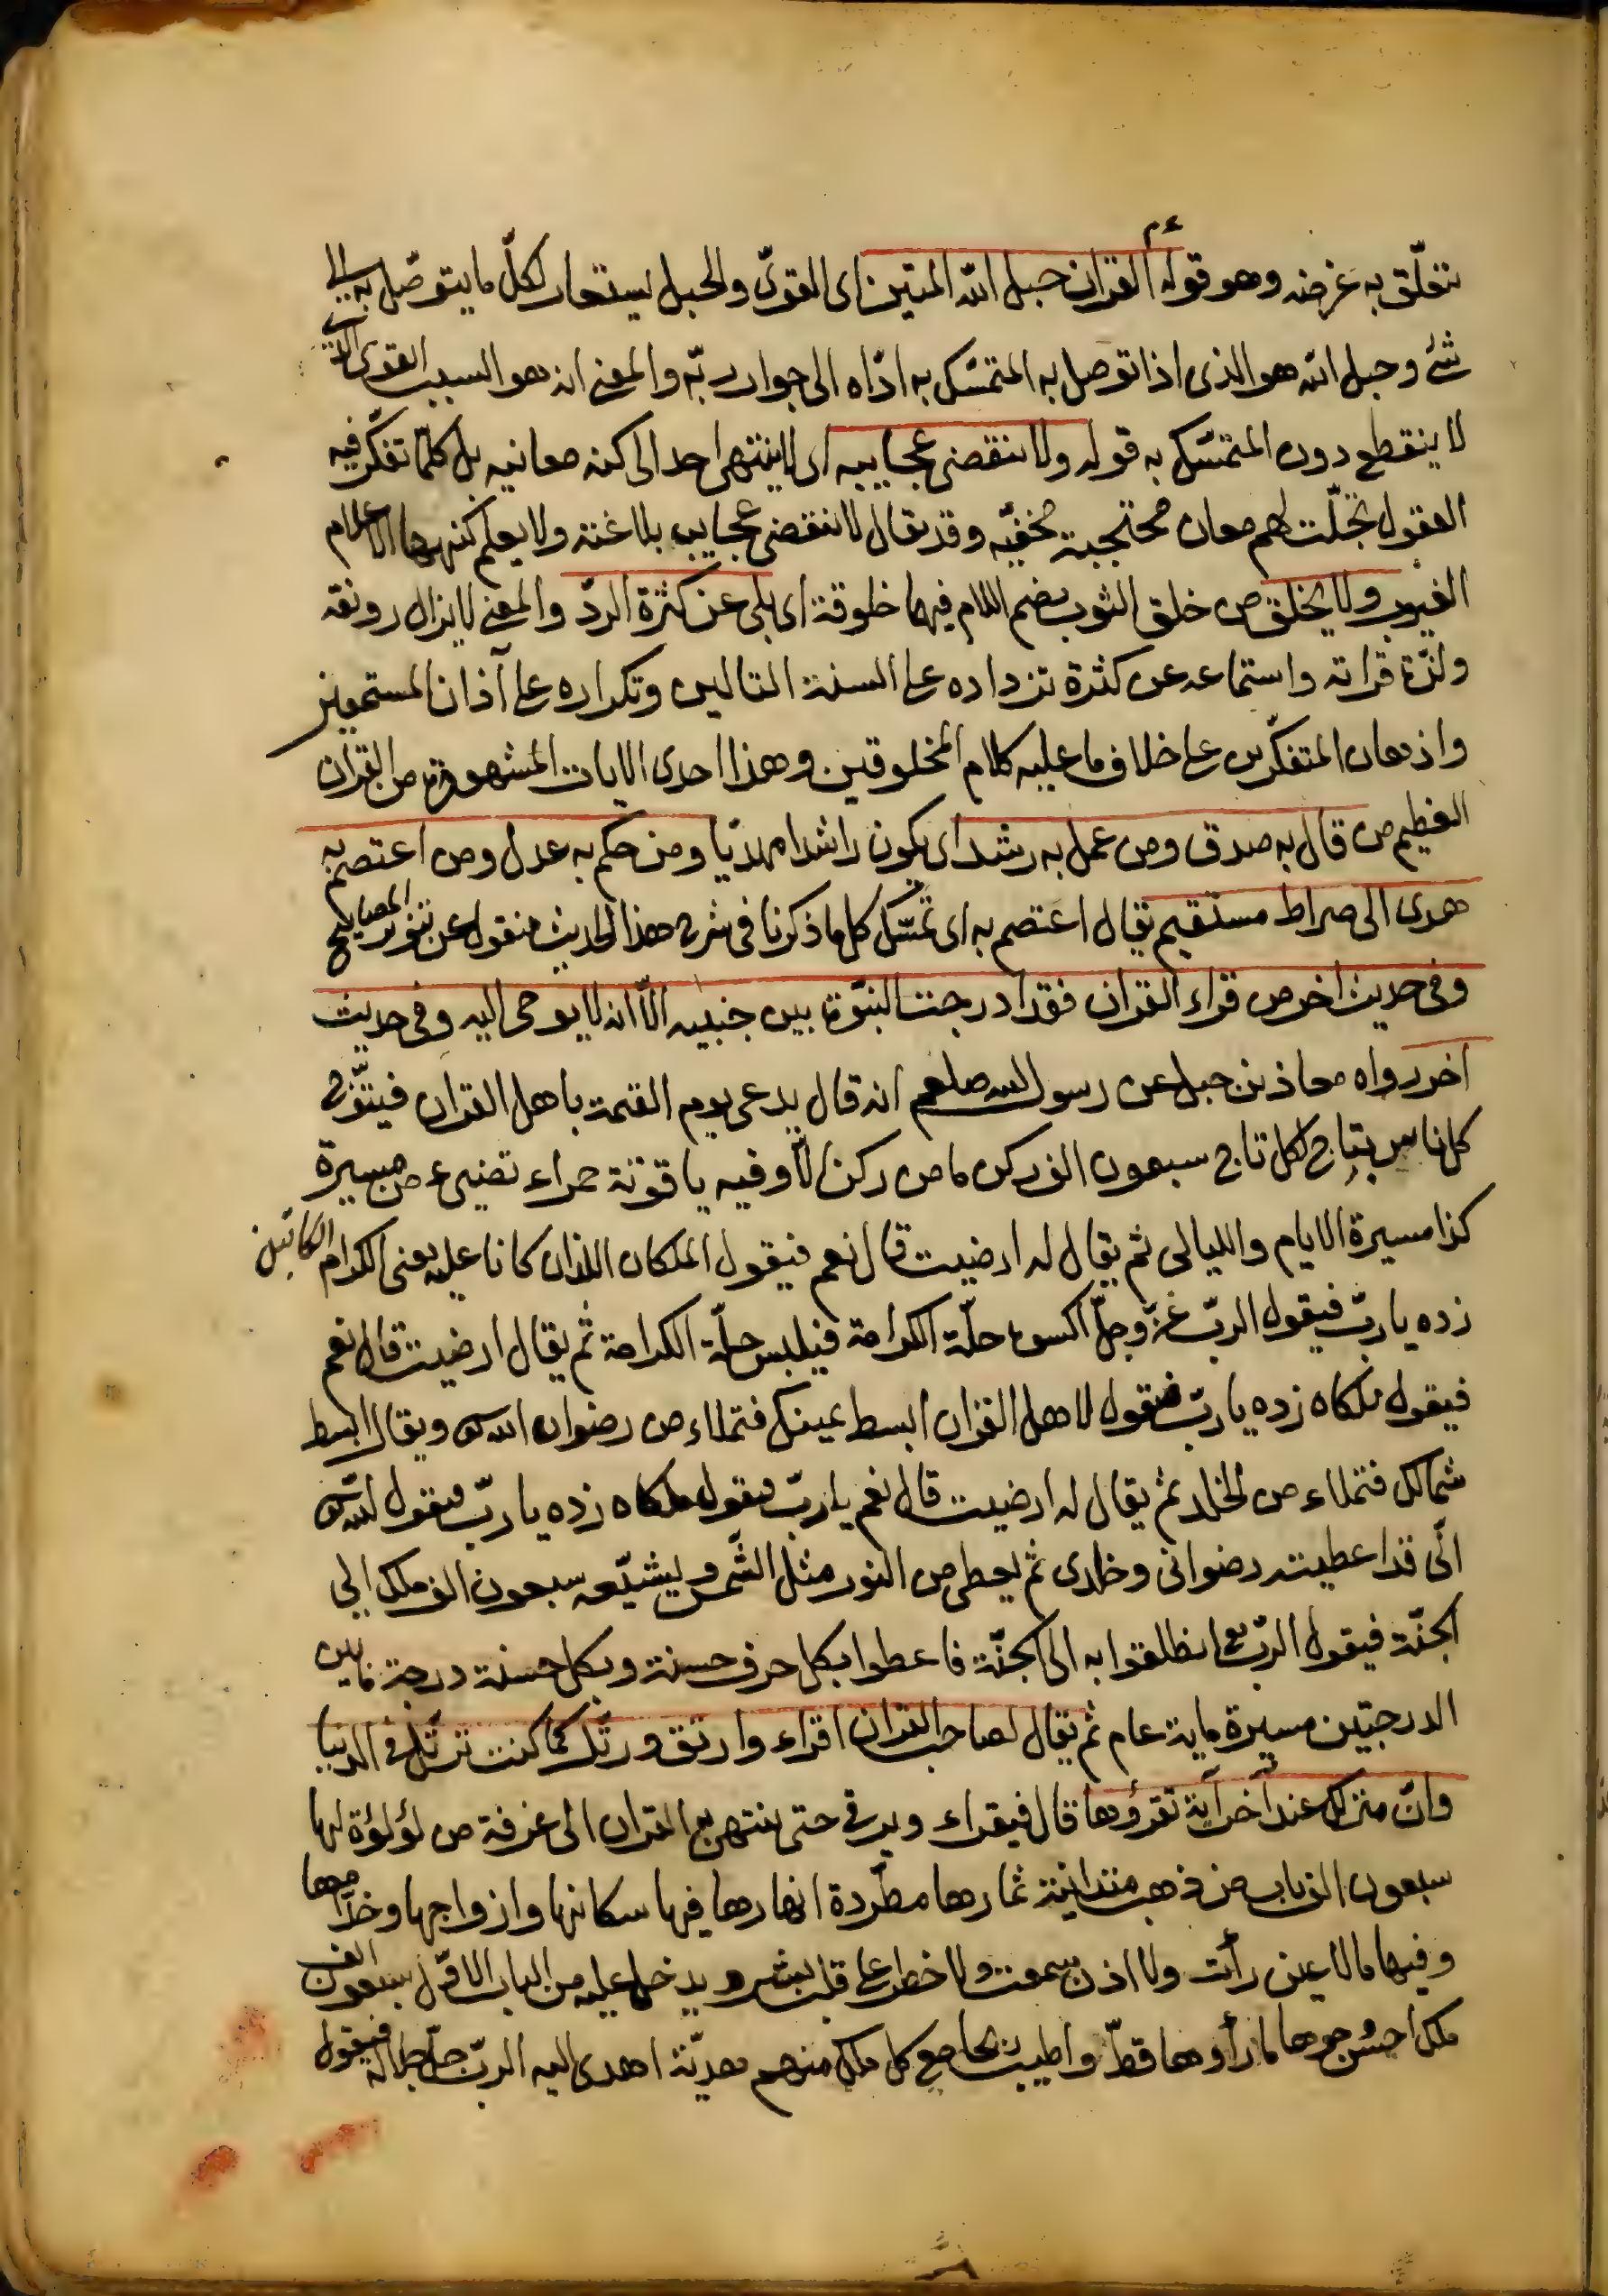 تتعلّق به غرضه وهو قوله ءم القران حبل الله المتين اى القوىّ والحبل يستعار لكلّ ما يتوصّل به الى
شئ وحبل الله هو الذى اذا توصل به المتمسّك به ادّاه الى جوار ربّه والمعنى انه هو السبب القوى الذى
لا ينقطع دون المتمسّك به قوله ولا تنقضى عجايبه اى لا ينتهى احد الى كنه معانيه بل كلّما تفكّر فيه
العقول تجلّت لهم معان محتجبة مخفيّه وقد يقال لا تنقضى عجايب بلاغته ولا يعلم كنهها الا علام
الغيوب ولا يخلق من خلق الثوب بضم اللام فيهما خلوقة اى بلى عن كثرة الردّ والمعنى لا يزال رونقه
ولذّة قراته واستماعه عن كثرة تزداده على السنة التالين وتكراره على آذان المستمعين
واذهان المتفكّرين على خلاف ما عليه كلام المخلوقين وهذا احدى الايات المشهورة من القران
العظيم من قال به صدق ومن عمل به رشد اى يكون راشدا مهديّا ومن حكم به عدل ومن اعتصم به
هدى الى صراط مستقيم يقال اعتصم به اى تمسّك كل ما ذكرنا فى شرح هذا الحديث منقول عن تنوير المصابيح
وفى حديث اخر من قراء القران فقد ادرجت النبوّة بين جنبيه الّا انه لا يوحى اليه وفى حديث
اخر رواه معاذ بن جبل عن رسول الله صلعم انه قال يدعى يوم القيمة باهل القران فيتوّج
كل اناس بتاج لكل تاج سبعون الف ركن ما من ركن الّا وفيه ياقوتة حمراء تضيىء من مسيرة
كذا مسيرة الايام والليالى ثم يقال له ارضيت قال نعم فيقول الملكان اللذان كانا عليه يعنى الكرام الكاتبين
زده يا ربّ فيقول الربّ عزّ وجلّ اكسوه حلّة الكرامة فيلبس حلّة الكرامة ثم يقال ارضيت قال نعم
فيقول ملكاه زده يا ربّ فيقول لاهل القران ابسط يمينك فتملاء من رضوان الله ويقال ابسط
شمالك فتملاء من الخلد ثم يقال له ارضيت قال نعم يا ربّ فيقول ملكاه زده يا ربّ فيقول الله
انّى قد اعطيته رضوانى وخلدى ثم يعطى من النور مثل الشّمس ويشيّعه سبعون الف ملك الى
الجنّة فيقول الربّ تع انطلقوا به الى الجنّة فاعطوا بكل حرف حسنة وبكل حسنة درجة ما بين
الدرجتين مسيرة ماية عام ثم يقال لصاحب القران اقراء وارتق ورتّل كما كنت ترتّل فى الدنيا
وانّ منزلك عند آخر آية تقرؤها قال فيقراء ويرقى حتى ينتهى به القران الى غرفة من لؤلؤة لها
سبعون الف باب من ذهب متدانية ثمارها مطّردة انهارها فيها سكانها وازواجها وخدّامها
وفيها ما لا عين رأت ولا اذن سمعت ولا خطر على قلب بشر ويدخل عليه من الباب الاوّل سبعون الف
ملك احسن وجوها ما رأوها قطّ واطيب مع كل ملك منهم هديّة اهدى اليه الربّ جلّ جلاله فيقول